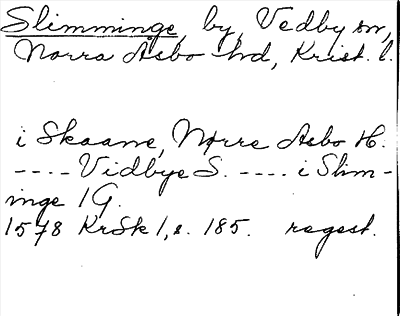 Slimminge, by, Vedby sn,
Norra Åsbo hd, Krist. l.
i Skaane, Nørre Asbo H.
---- Vidbye S. ---- i Slim-
inge 1 G.
1578 KrSk 1, s. 185. regest.